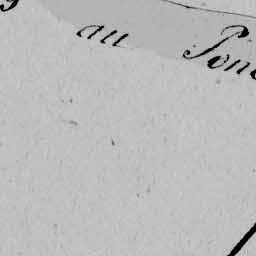 au Pon